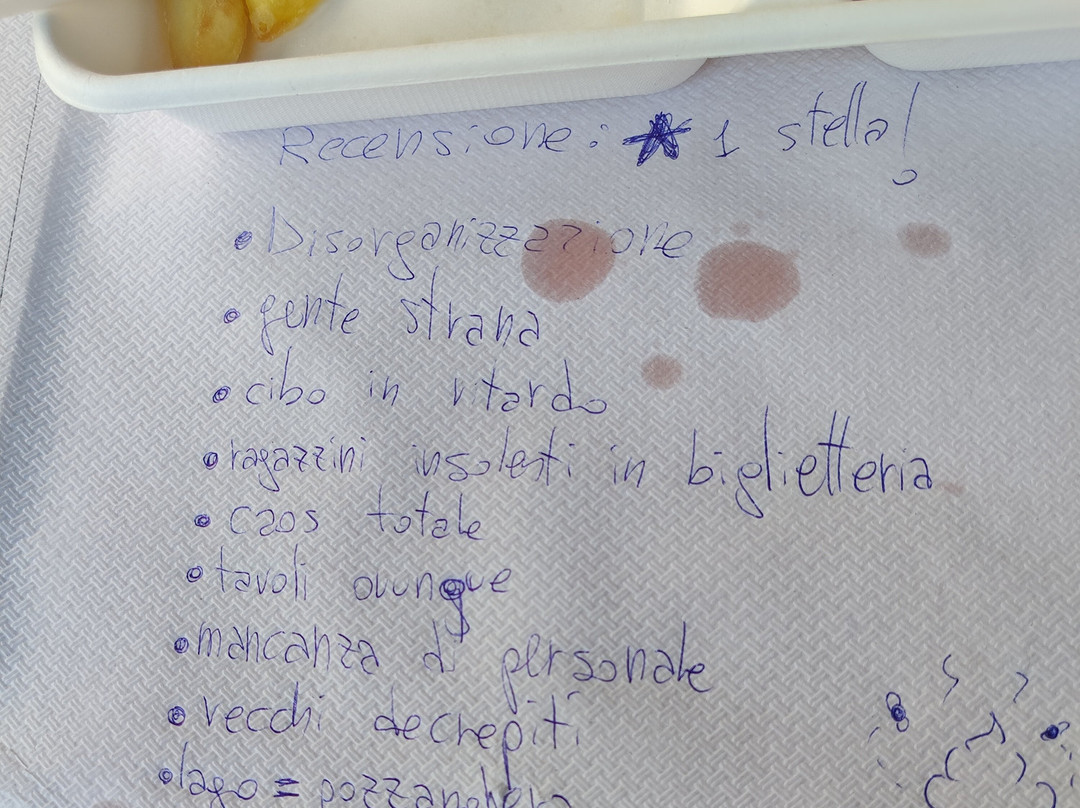 Recensione: ★ 1 stella!
• Disorganizzazione
• gente strana
• cibo in ritardo
• ragazzini insolenti in biglietteria
• caos totale
• tavoli ovunque
• mancanza di personale
• vecchi decrepiti
• lago = pozzanghera